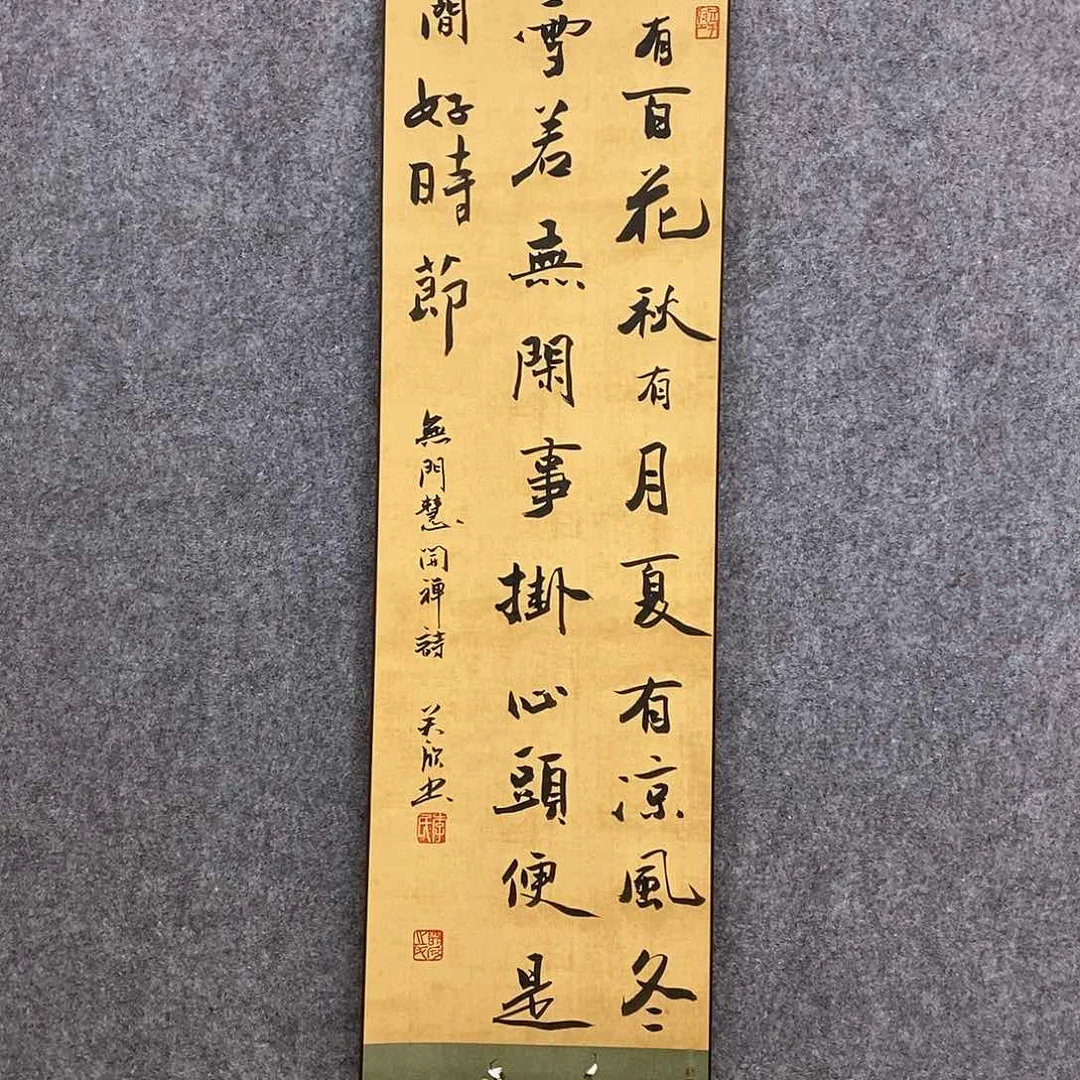 有百花秋有月夏有凉風冬
雪若無閑事掛心頭便是
間好時節
無門慧開禪詩
欣书